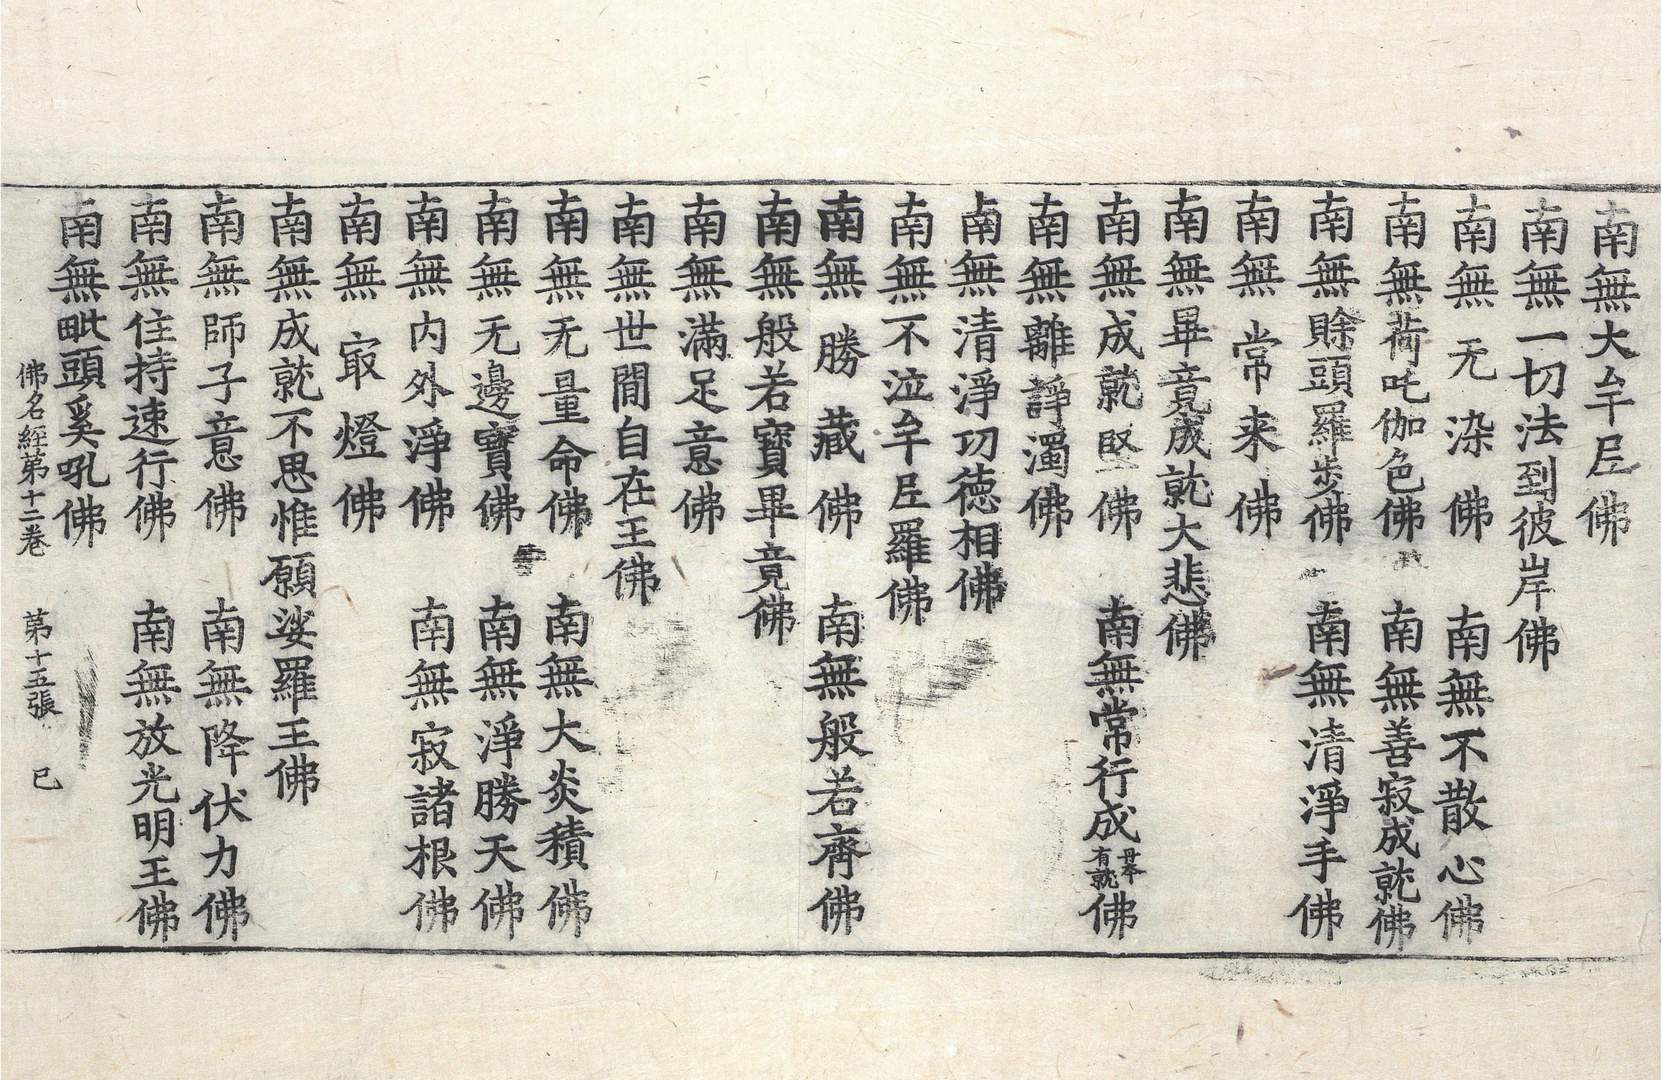 南無大牟尼佛
南無一切法到彼岸佛
南無无染佛　南無不散心佛
南無荷吒伽色佛　南無善寂成就佛
南無賖頭羅步佛　南無清淨手佛
南無常来佛
南無畢竟成就大悲佛
南無成就堅佛　南無常行成丹本有就佛
南無離諍濁佛
南無清淨功德相佛
南無不泣牟尼羅佛
南無勝藏佛　南無般若齊佛
南無般若寶畢竟佛
南無滿足意佛
南無世間自在王佛
南無无量命佛　南無大炎積佛
南無无邊寶佛　南無淨勝天佛
南無内外淨佛　南無寂諸根佛
南無㝡燈佛
南無成就不思惟願娑羅王佛
南無師子意佛　南無降伏力佛
南無住持速行佛　南無放光明王佛
南無毗頭奚吼佛
佛名經第十二卷　第十五張　已